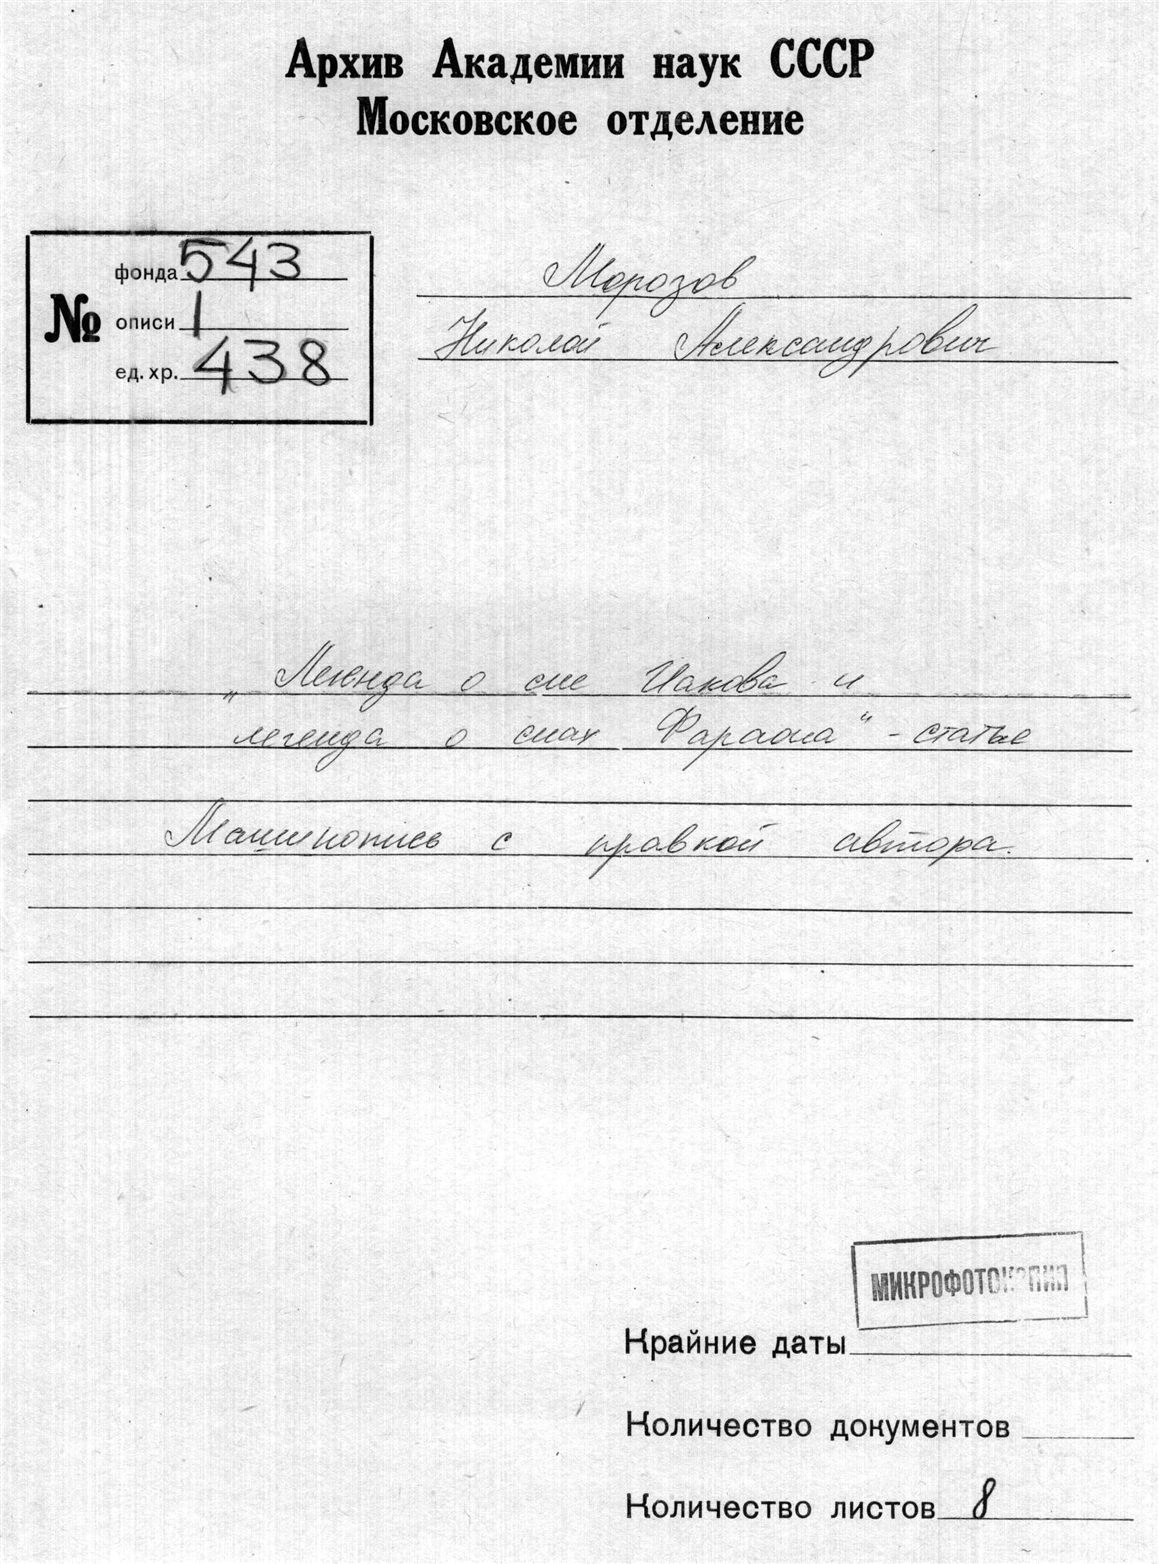 Архив Академии наук СССР
Московское отделение
№
фонда 543
описи 1
ед. хр. 438
Морозов
Николай Александрович
„Легенда о сне Иакова и
легенда о снах Фараона“ - статье
Машинопись с правкой автора.
МИКРОФОТОКОПИЯ
Крайние даты
Количество документов
Количество листов 8